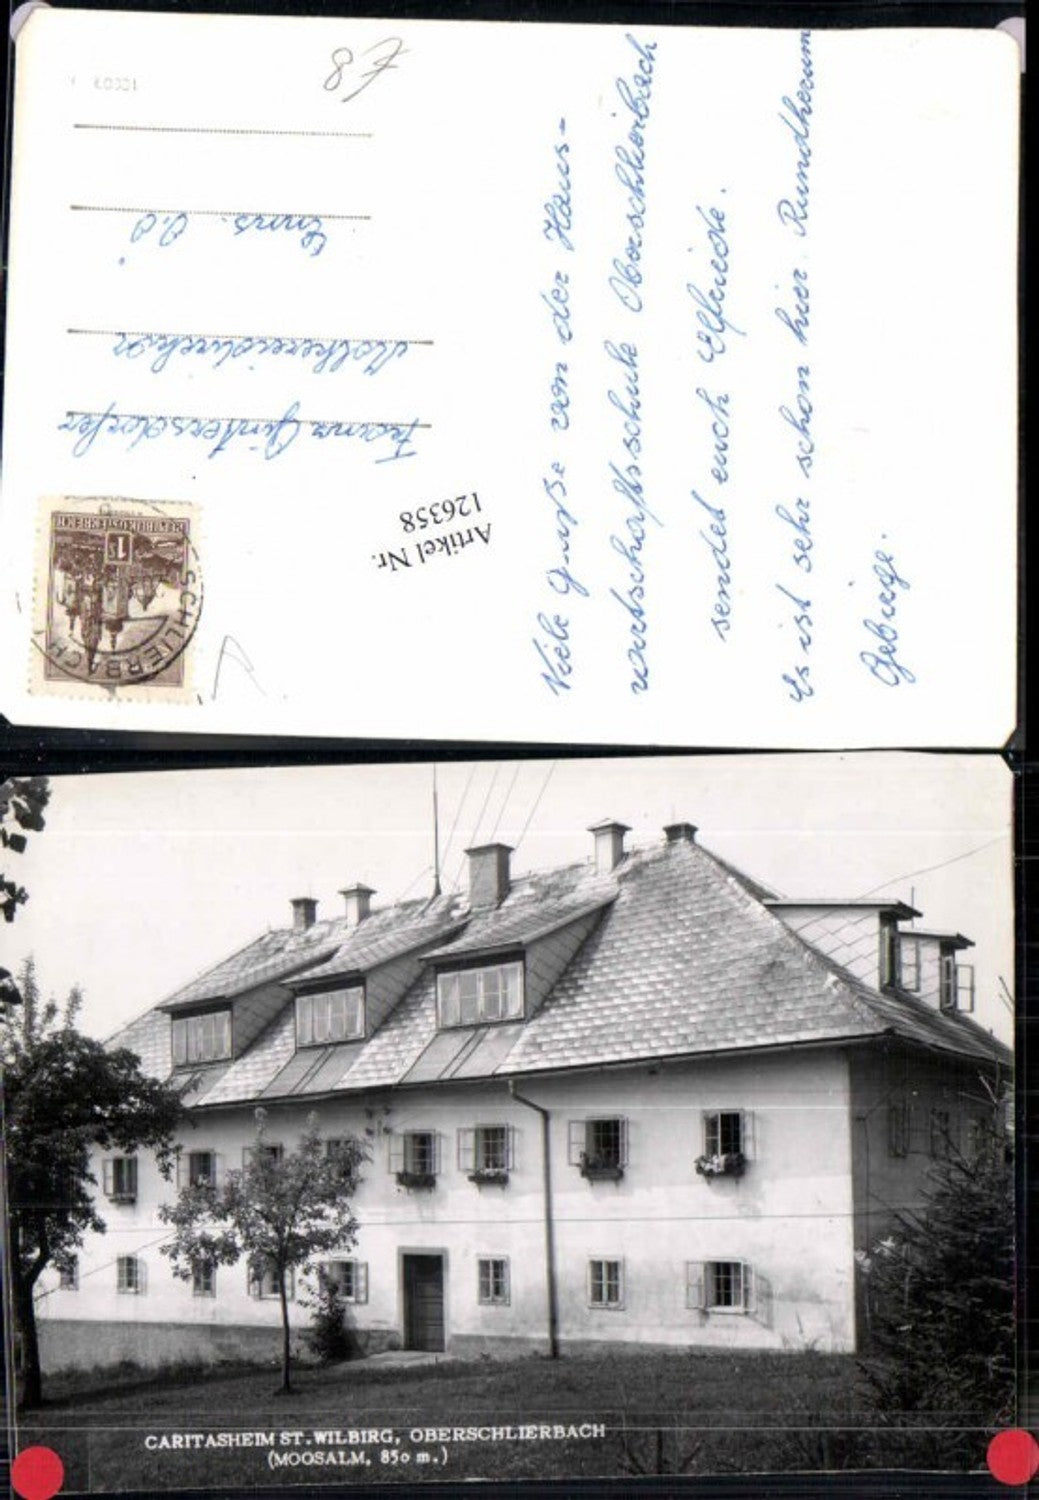 Viele Grüße von der Haus-
wirtschaftsschule Oberschlierbach
sendet euch Elfriede.
Es ist sehr schön hier. Rundherum
Gebirge.
Artikel Nr.
126358
Güntersdorfer
Molkereidirektor
Enns. O.Ö
REPUBLIK ÖSTERREICH
1S
SCHLIERBACH
CARITASHEIM ST. WILBIRG, OBERSCHLIERBACH
(MOOSALM, 850 m.)